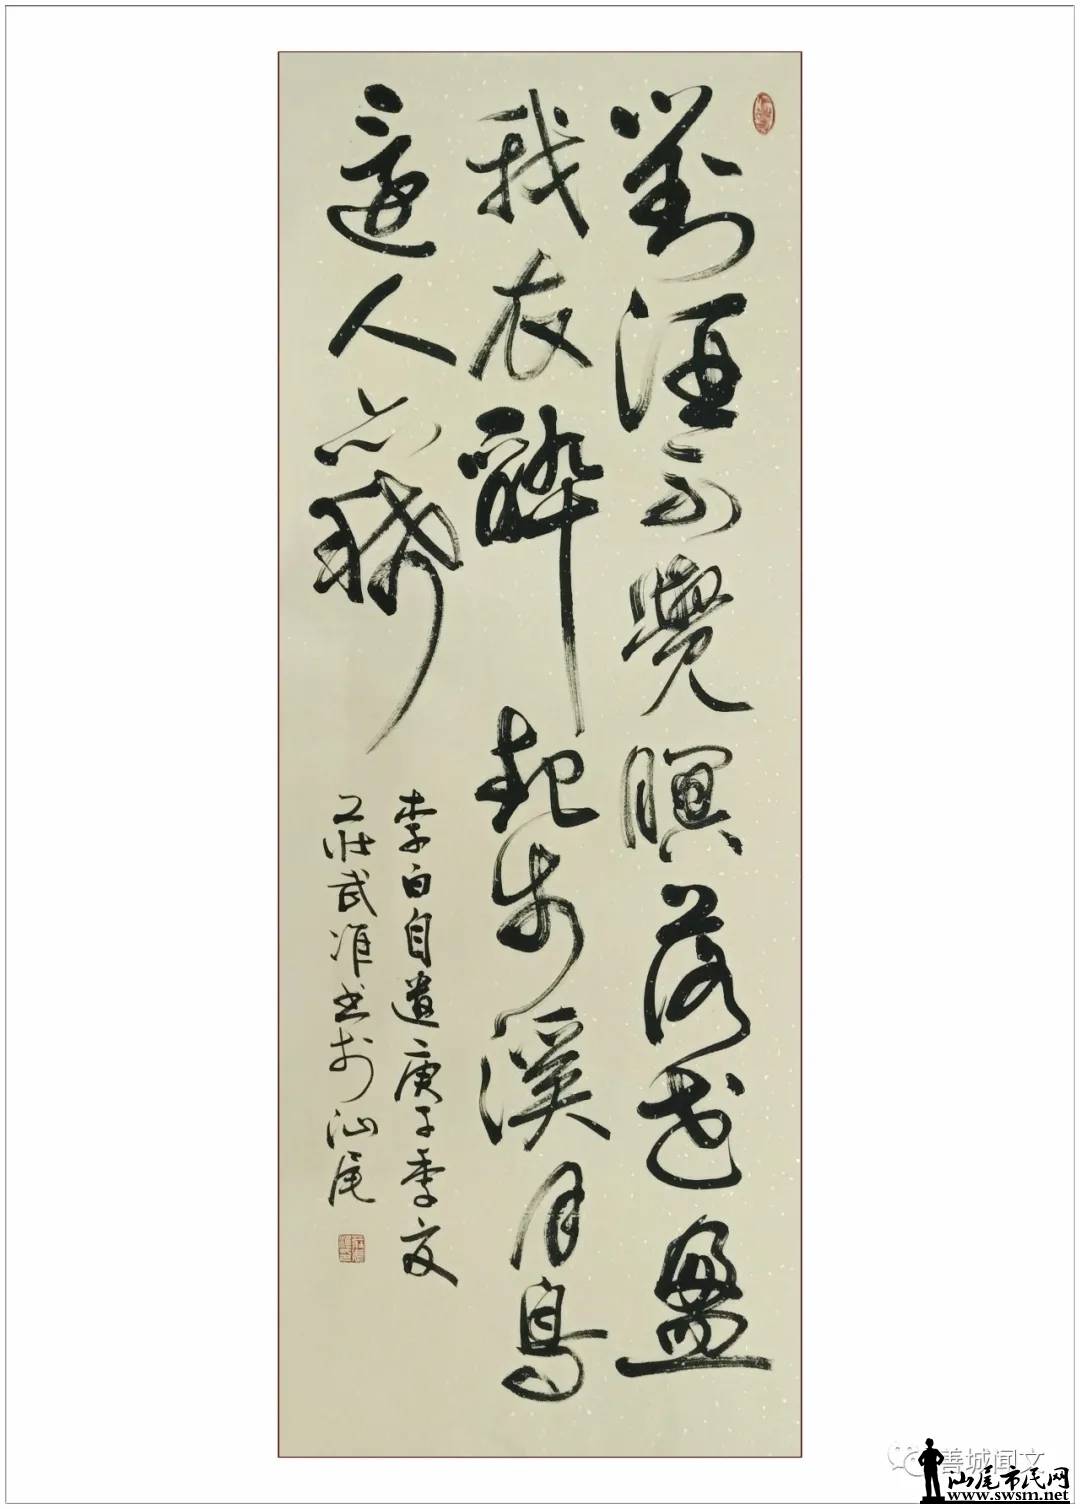 對酒不覺暝落花盈
我衣醉起步溪月鳥
還人亦稀
李白自遣庚子季夏
莊武准书於汕尾
善城闻文
汕尾市民网
www.swsm.net